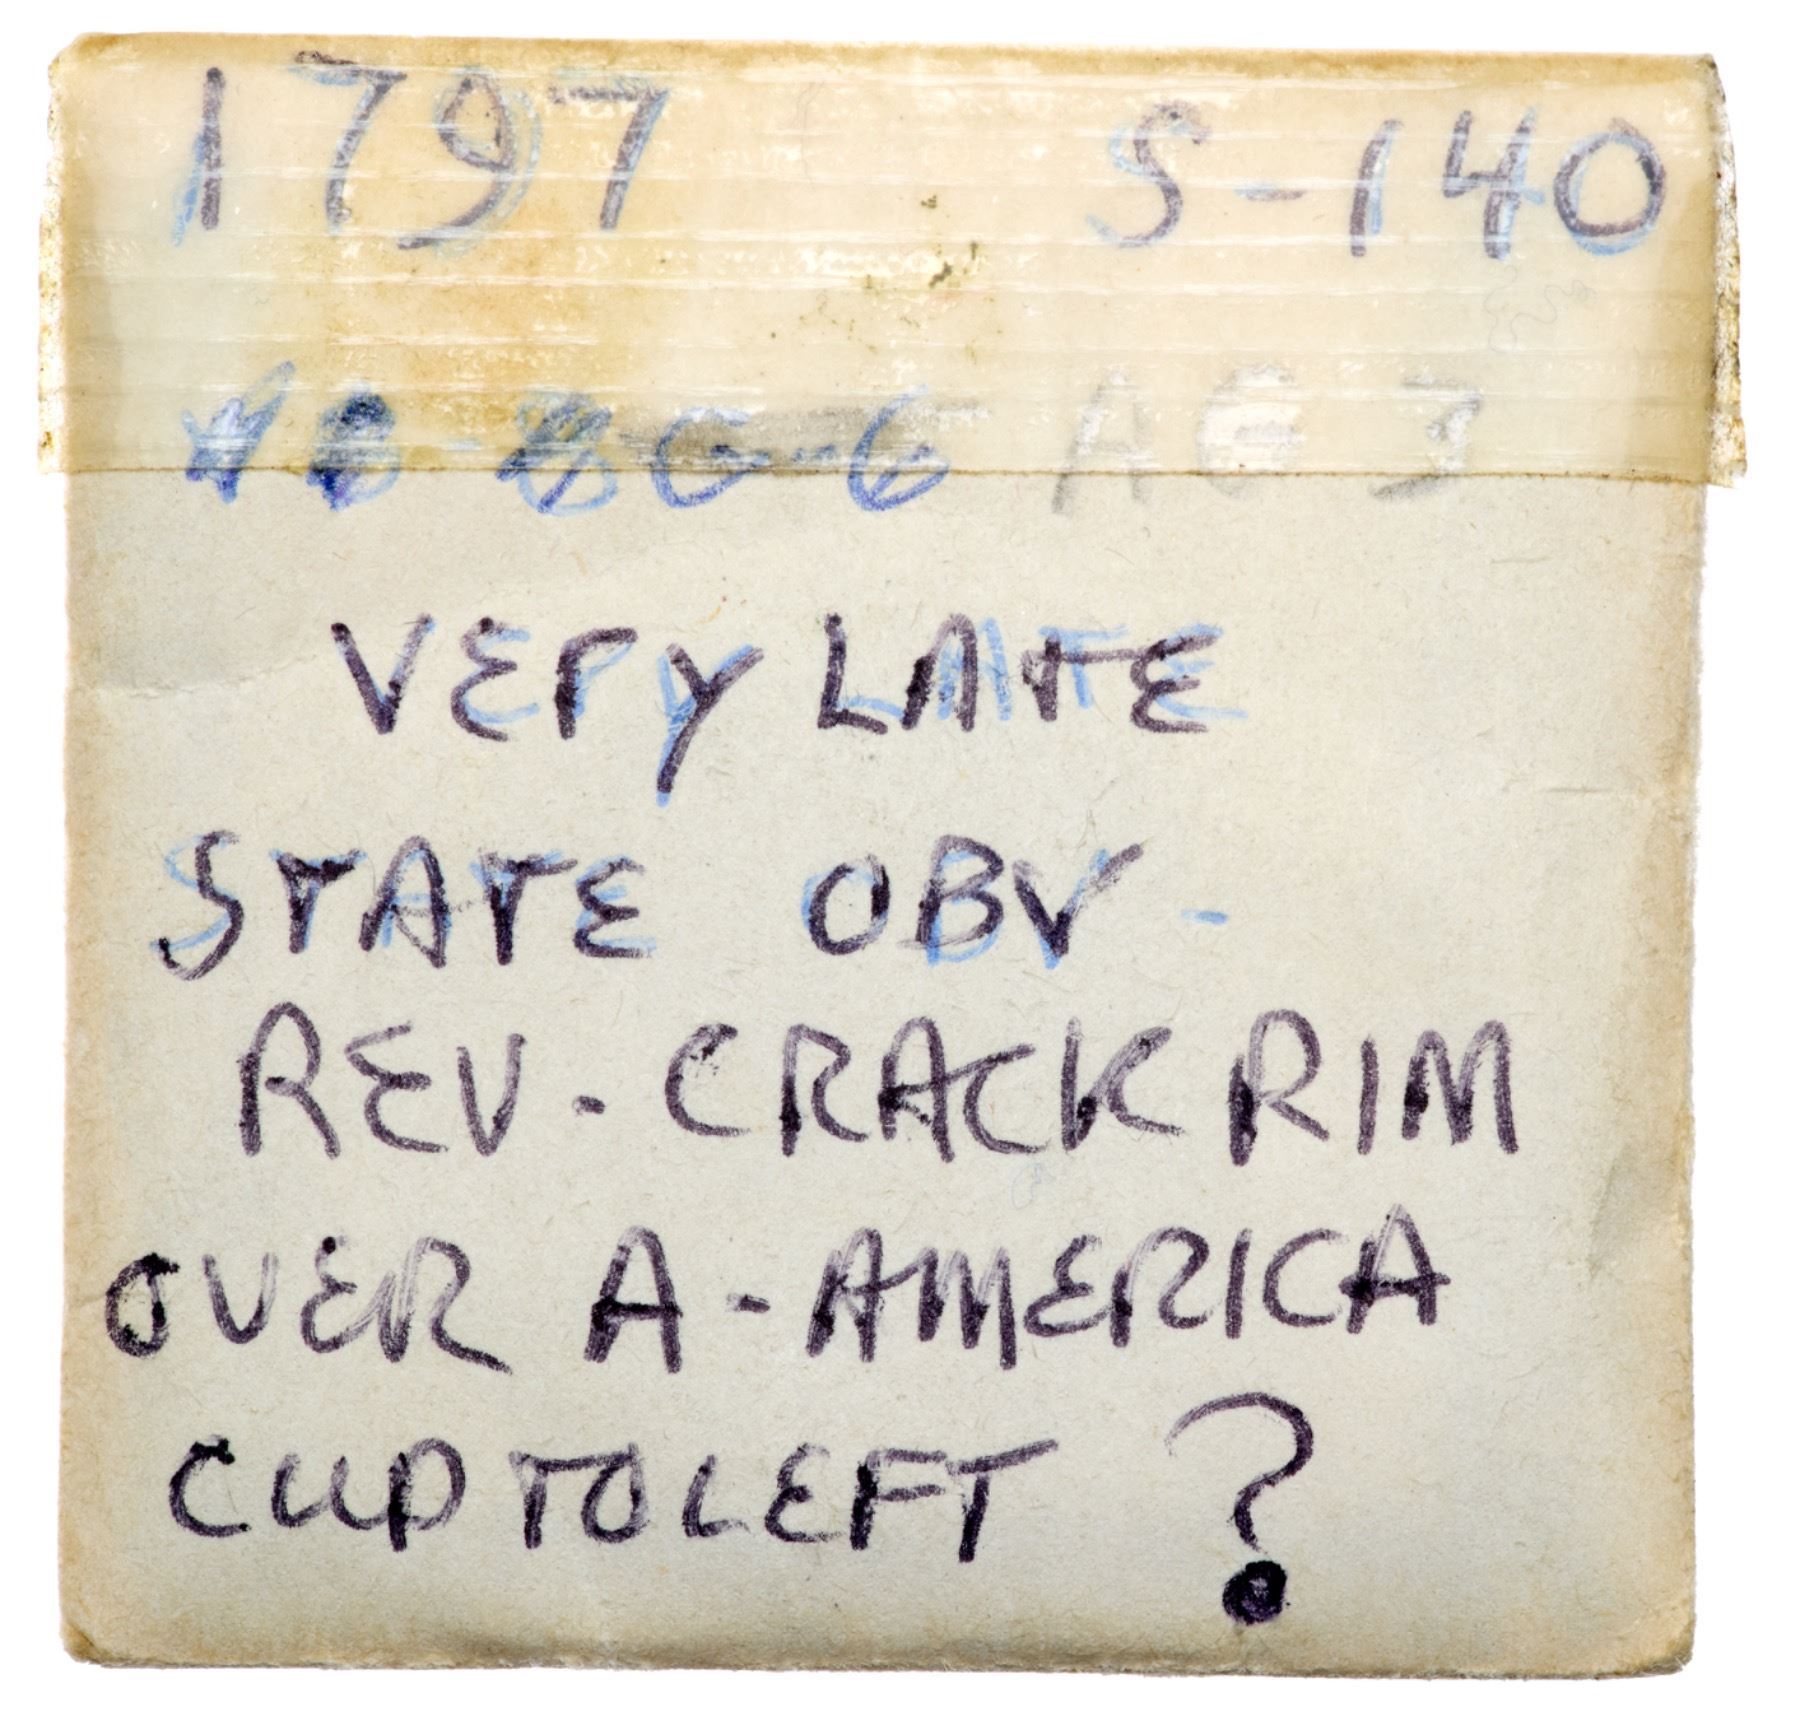 1797 S-140
AG 3
VERY LATE
STATE OBV -
REV - CRACK RIM
OVER A - AMERICA
CUD TO LEFT ?